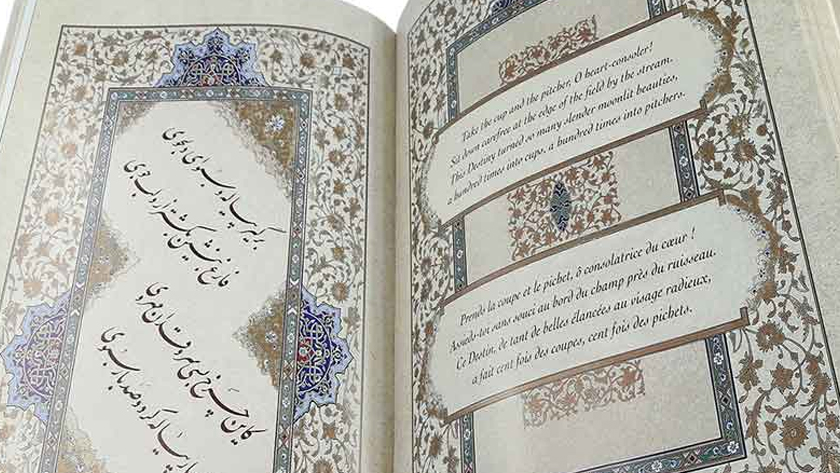 برگیر پیاله و سبو ای دلجوی
فارغ بنشین بکشتزار و لب جوی
کاین چرخ بسی سروقدان مهروی
بار پیاله کرد و صد بار سبوی
Take the cup and the pitcher, O heart-consoler!
Sit down carefree at the edge of the field by the stream.
This Destiny turned so many slender moonlit beauties,
a hundred times into cups, a hundred times into pitchers.
Prends la coupe et le pichet, ô consolatrice du cœur !
Assieds-toi sans souci au bord du champ près du ruisseau.
Ce Destin, de tant de belles élancées au visage radieux,
a fait cent fois des coupes, cent fois des pichets.